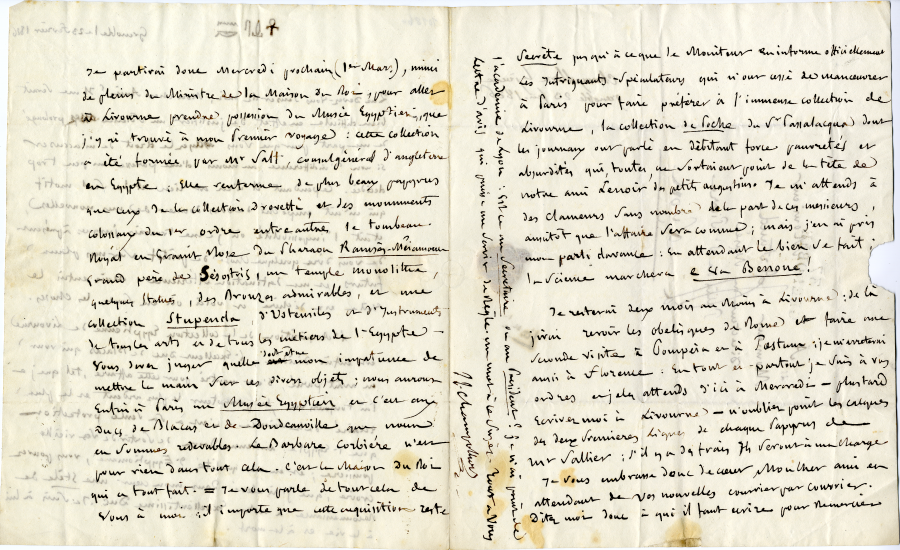 Je partirai donc Mercredi prochain (1er Mars), muni
de pleins du Ministre de la Maison du Roi, pour aller
à Livourne prendre possession du Musée Egyptien, que
j'y ai trouvé à mon premier voyage : cette collection
a été formée par Mr Salt, consul général d'angleterre
en Egypte. Elle renferme de plus beaux papyrus
que ceux de la collection drovetti, et des monuments
colossaux du 1er ordre entr'autres le tombeau
Royal en Granit Rose du Pharaon Ramsès-Méiamoun
Grand père de Sésostris, un temple monolithe,
quelques Statues, des Bronzes admirables, et une
collection Stupenda d'Ustensiles et d'Instruments
de tous les arts et de tous les métiers de l'Egypte —
Vous devez juger quelle doit être mon impatience de
mettre la main sur ces divers objets ; nous aurons
Enfin à Paris un Musée Egyptien et c'est aux
Ducs de Blacas et de Doudeauville que nous
en sommes redevables. Le Barbare Corbière n'est
pour rien dans tout cela. C'est la Maison du Roi
qui a tout fait. = Je vous parle de tout cela de
Vous à moi : il importe que cette acquisition reste
Secrète jusqu'à ce que le Moniteur en informe officiellement
les Intriguants-Spéculateurs qui n'ont cessé de manœuvrer
à Paris pour faire préférer à l'immense collection de
Livourne, la collection de Poche du Sr Passalacqua dont
les journaux ont parlé en débitant force pauvretés et
absurdités qui toutes, ne sortaient point de la tête de
notre ami Lenoir des petits augustins. Je m'attends à
des clameurs sans nombre de la part de ces messieurs,
aussitôt que l'affaire sera connue ; mais j'en ai pris
mon parti d'avance : En attendant le bien se fait ;
la Science marchera
Je resterai deux mois au Moins à Livourne : de là
j'irai revoir les obélisques de Rome et faire une
seconde visite à Pompéia et à Pæstum : je m'arrêterai
aussi à Florence. En tout et partout je suis à vos
ordres et je les attends d'ici à Mercredi — plus tard
Ecrivez moi à Livourne — n'oubliez point les calques
des deux dernières lignes de chaque Papyrus de
Mr Sallier ; s'il y a des frais ils seront à ma charge
Je vous embrasse donc de cœur Mon cher ami en
attendant de vos nouvelles courrier par courrier.
Dites moi donc à qui il faut écrire pour Remercier
l'académie de Lyon : Est-ce un Secrétaire ou au Président ? Je n'ai point de
Lettre d'avis qui puisse me servir de Règle un mot à ce sujet. Tout à Vous
J. f. champollion